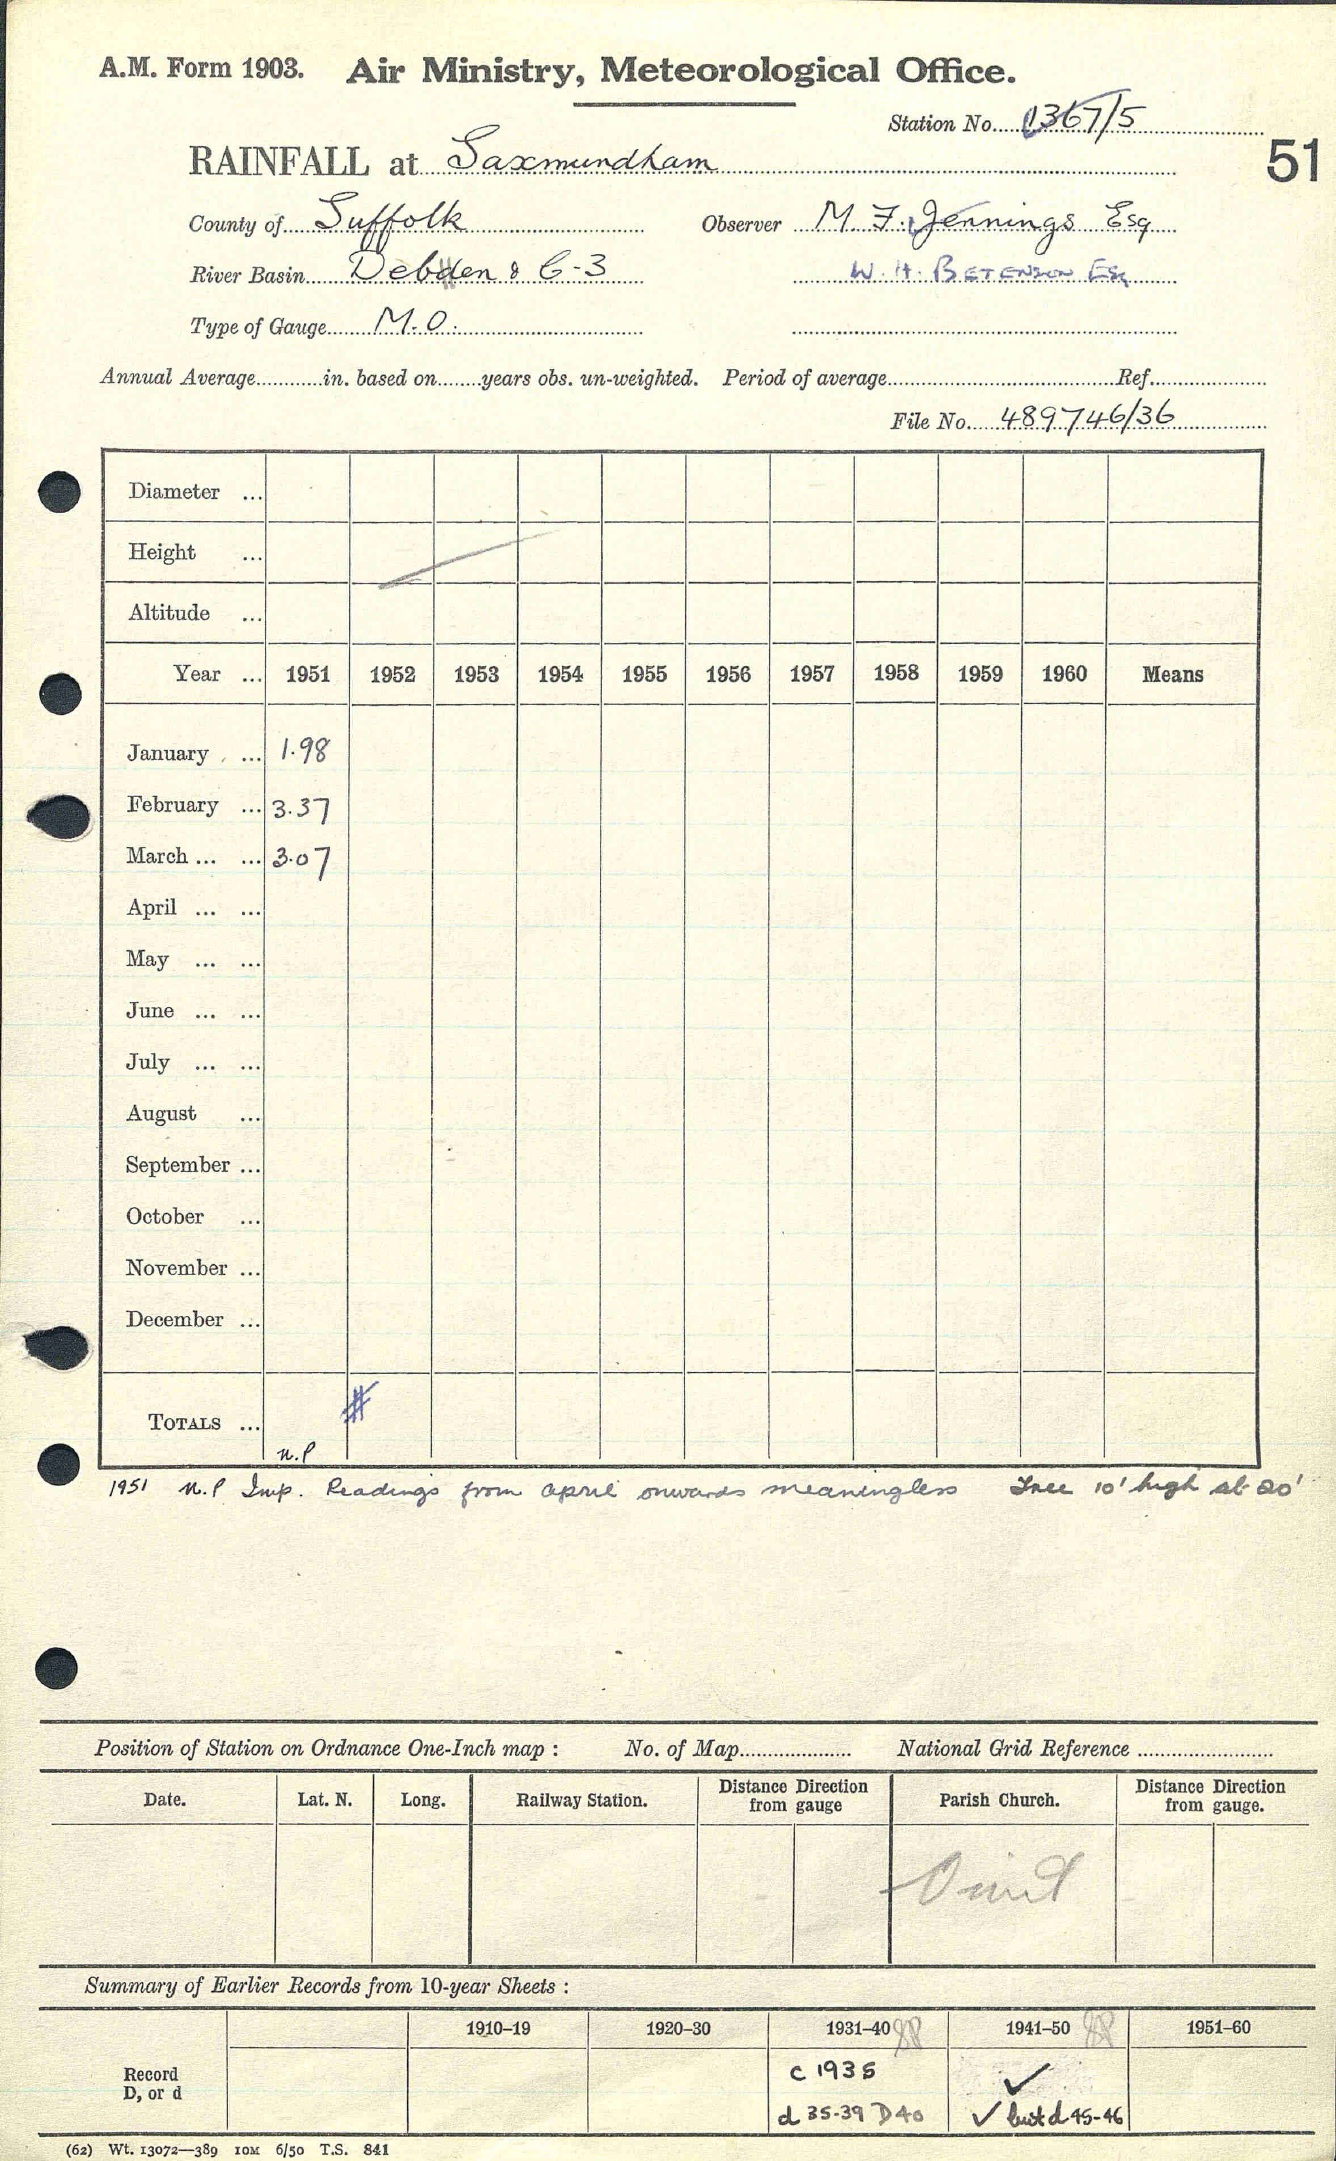 A.M. Form 1903. Air Ministry, Meteorological Office.
Station No. 1367/5
RAINFALL at Saxmundham
51
County of Suffolk Observer M. F. Jennings Esq
River Basin Debden & 6-3 W. H. BETENSON ESQ
Type of Gauge M.O.
Annual Average............in. based on........years obs. un-weighted. Period of average........Ref........
File No. 489746/36
Diameter ...
Height ...
Altitude ...
Year ... 1951 1952 1953 1954 1955 1956 1957 1958 1959 1960 Means
January ... 1.98
February ... 3.37
March ... ... 3.07
April ... ...
May ... ...
June ... ...
July ... ...
August ...
September ...
October ...
November ...
December ...
TOTALS ... #
n.P
1951 n.P Imp. Readings from april onwards meaningless Tree 10' high at 20'
Position of Station on Ordnance One-Inch map : No. of Map........ National Grid Reference ........
Date. Lat. N. Long. Railway Station. Distance Direction from gauge Parish Church. Distance Direction from gauge.
Summary of Earlier Records from 10-year Sheets :
1910–19 1920–30 1931–40 1941–50 1951–60
Record D, or d
c 1935 ✓
d 35-39 D40 ✓ but d 45-46
(62) Wt. 13072—389 10M 6/50 T.S. 841